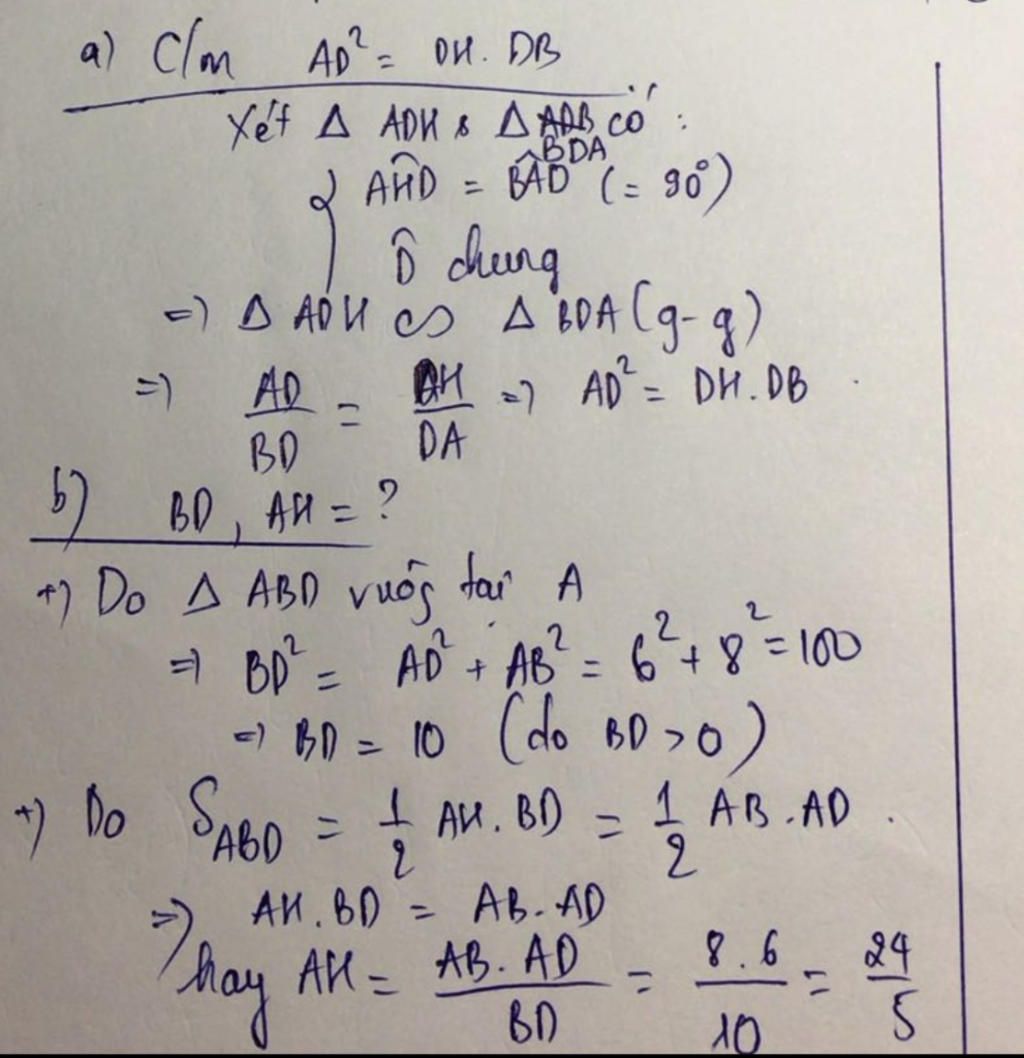 a) C/m AD² = DH. DB
Xét Δ ADH & Δ ADB có :
BDA
{ AĤD = BÂD (= 90°)
D̂ chung
=> Δ ADH ∽ Δ BDA (g-g)
=> AD/BD = DH/DA => AD² = DH.DB
b) BD, AH = ?
+) Do Δ ABD vuôg tại A
=> BD² = AD² + AB² = 6² + 8² = 100
=> BD = 10 (do BD > 0)
+) Do S_ABD = 1/2 AH. BD = 1/2 AB. AD.
=> AH. BD = AB. AD
hay AH = AB. AD/BD = 8.6/10 = 24/5